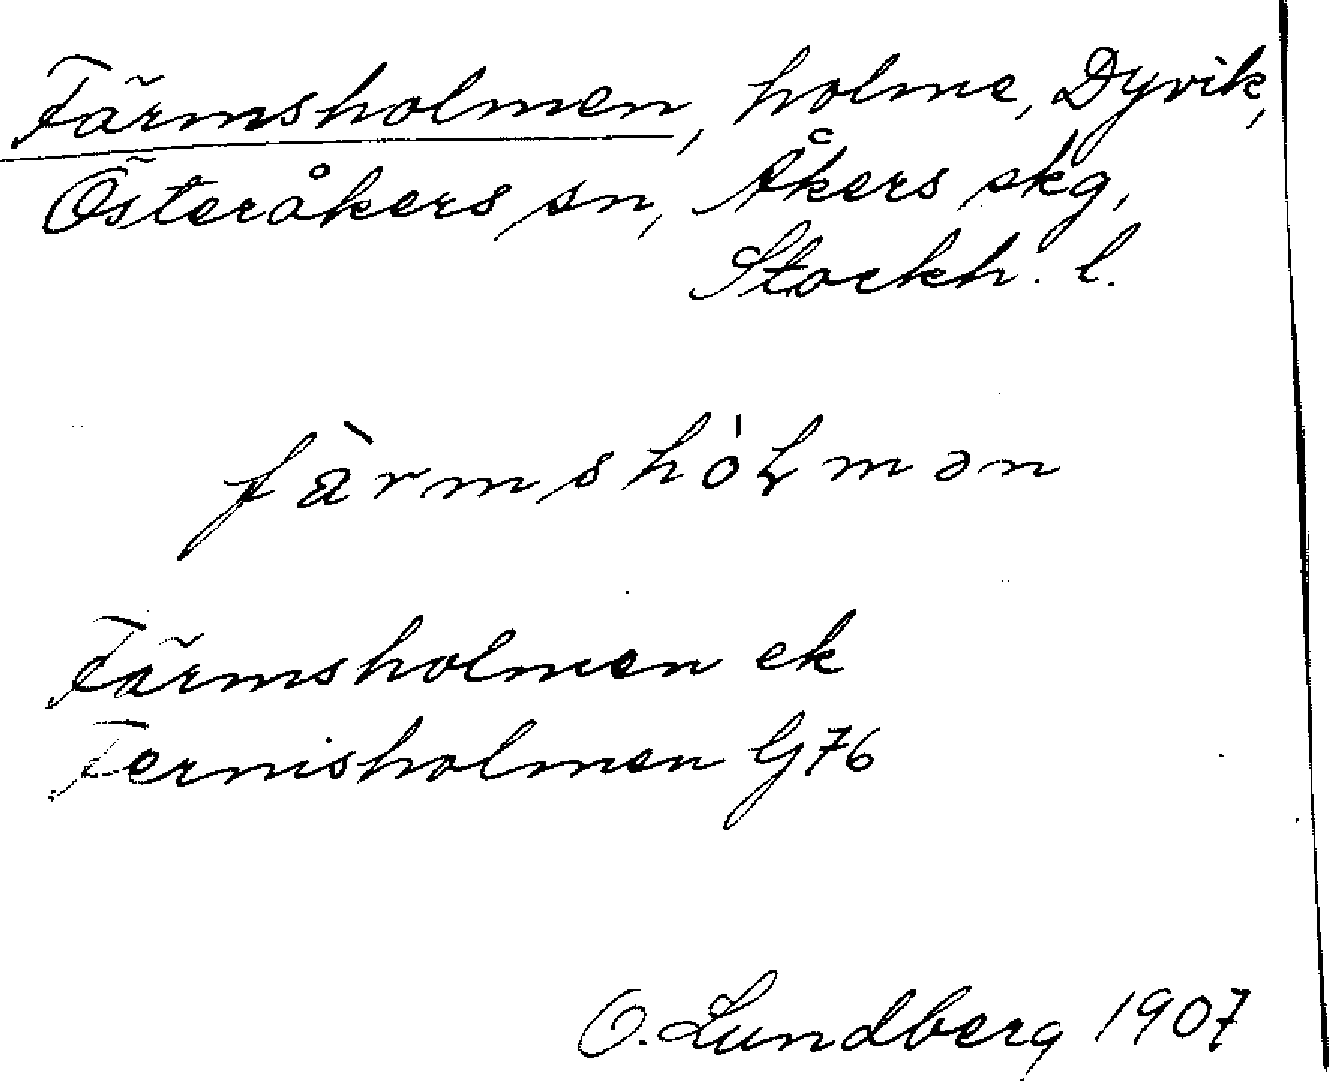 Färmsholmen, holme, Dyvik,
Österåkers sn, Åkers skg,
Stockh. l.
fàrmshólmən
Färmsholmen ek
Fermsholmen G76
O. Lundberg 1907